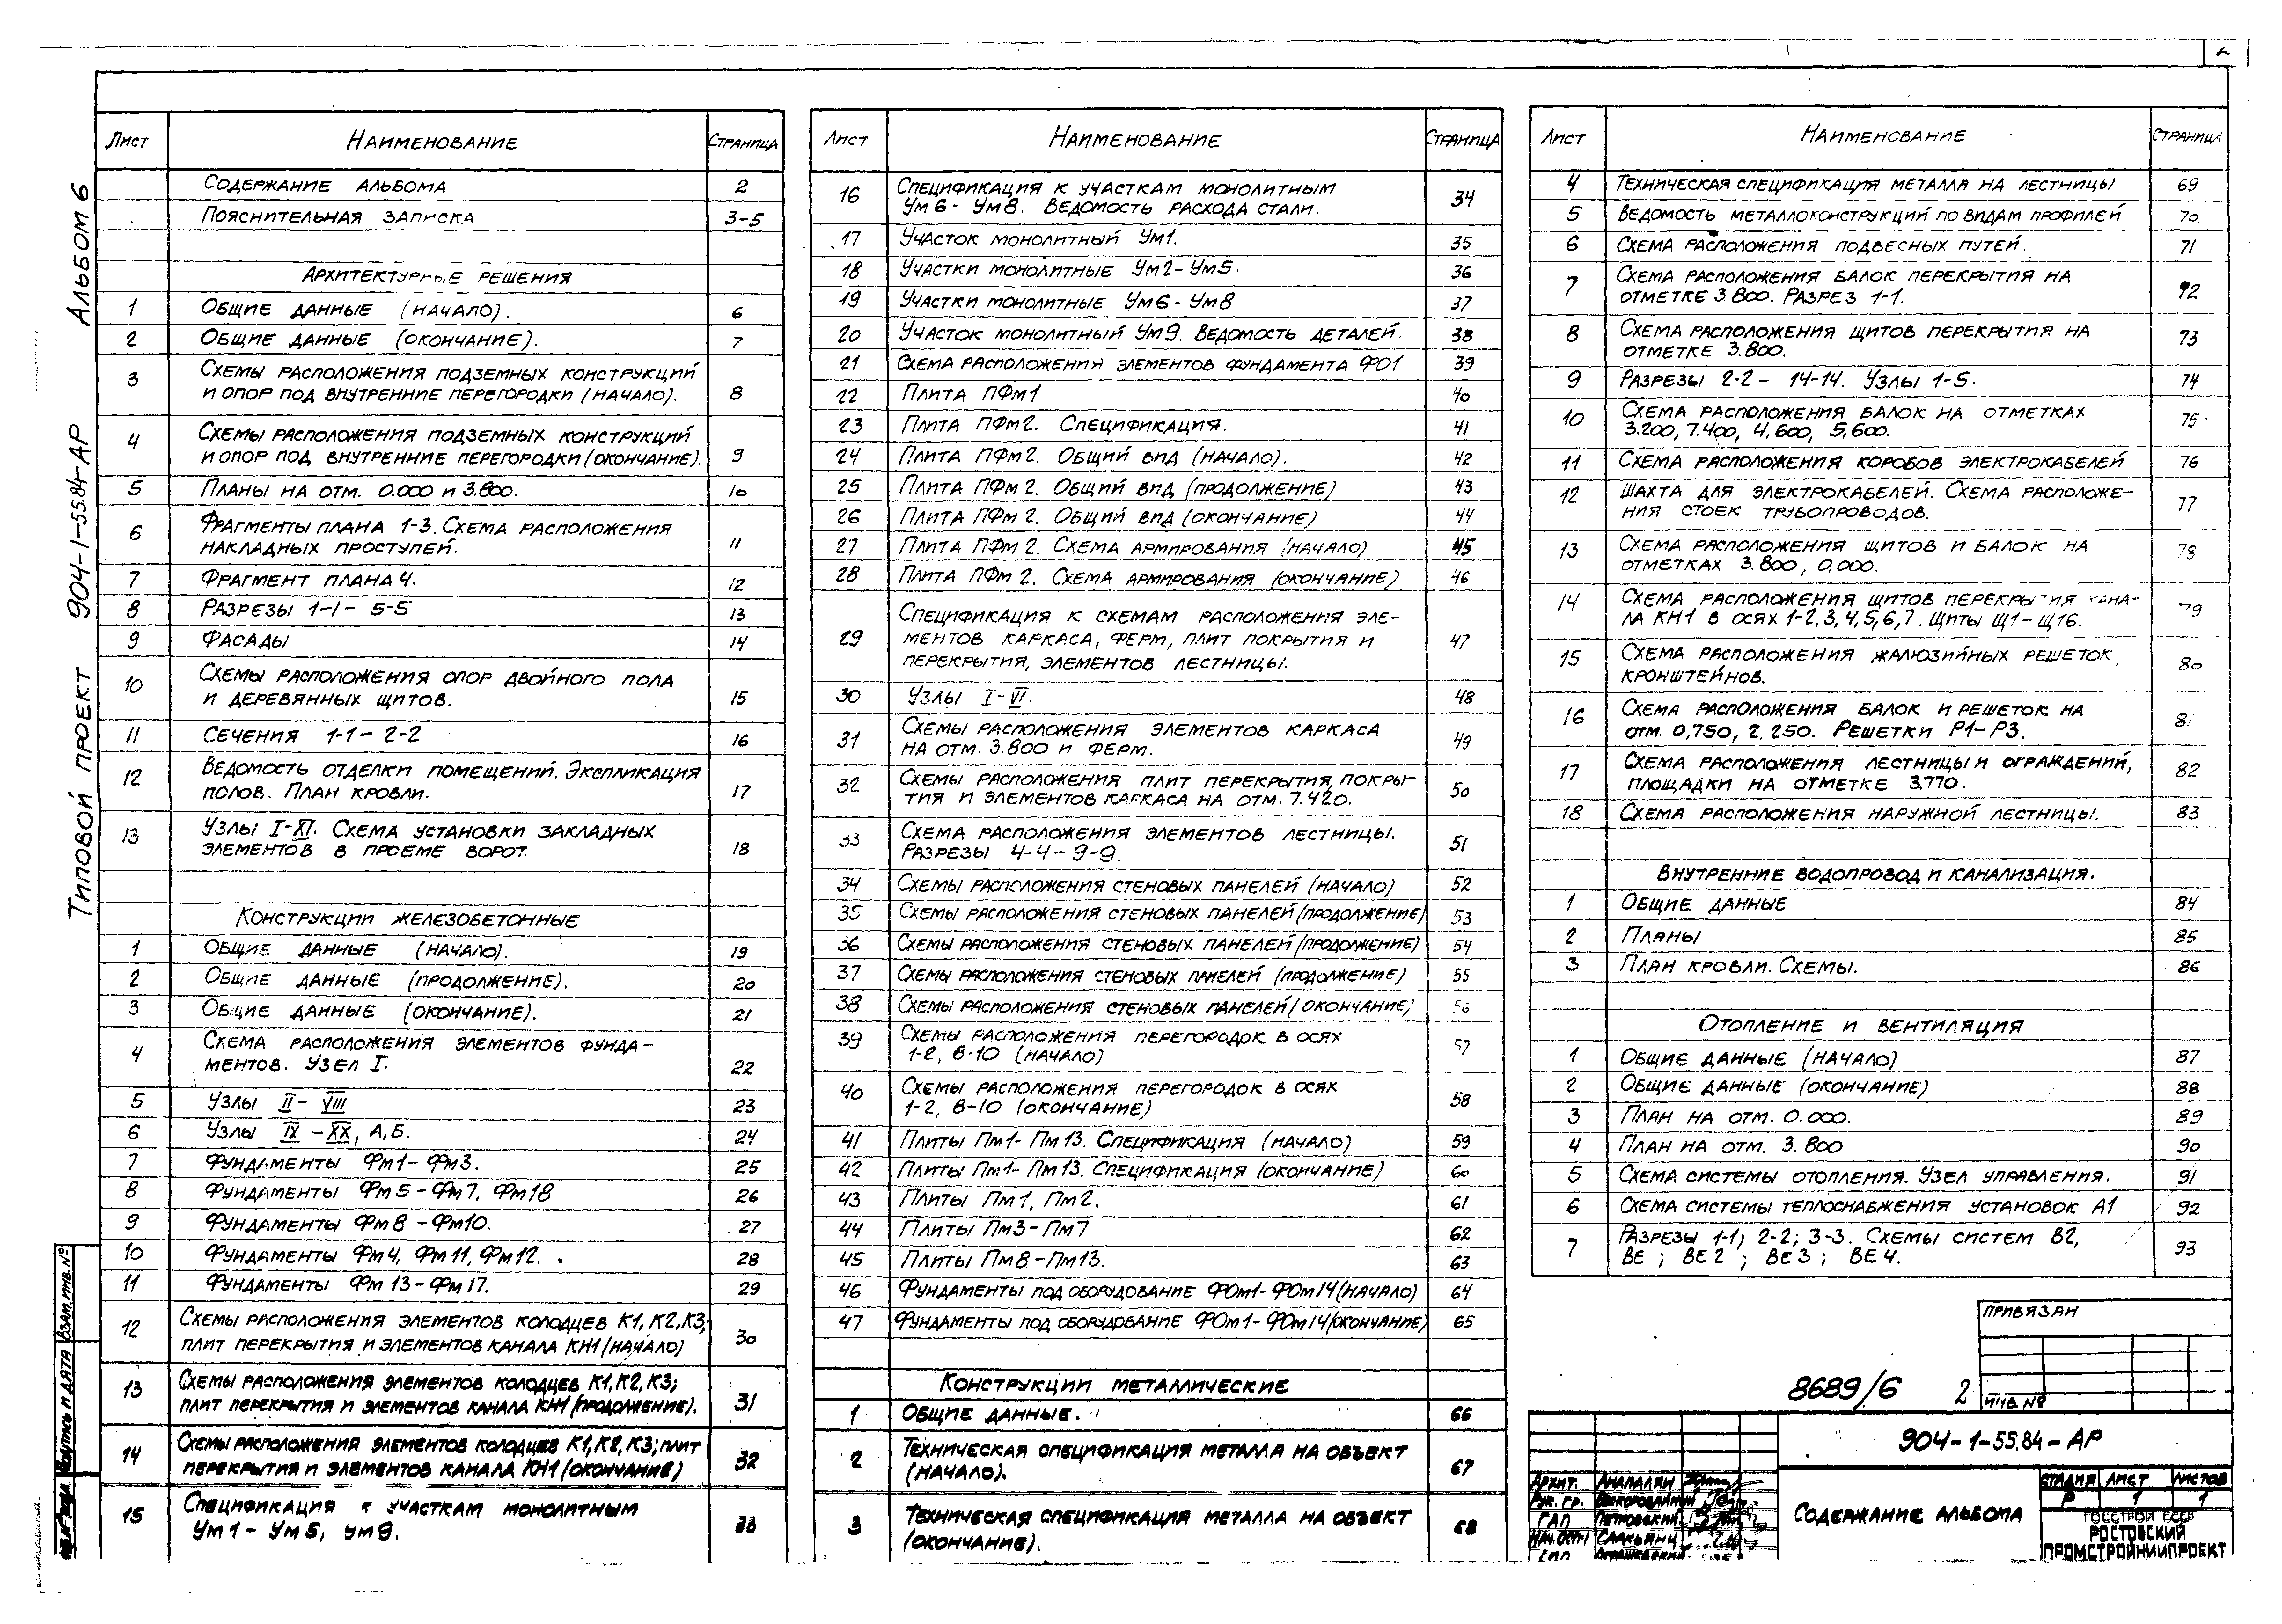 Типовой проект 904-1-55.84-АР Альбом 6
Лист Наименование Страница
Содержание альбома 2
Пояснительная записка 3-5
Архитектурные решения
1 Общие данные (начало). 6
2 Общие данные (окончание). 7
3 Схемы расположения подземных конструкций
и опор под внутренние перегородки (начало). 8
4 Схемы расположения подземных конструкций
и опор под внутренние перегородки (окончание). 9
5 Планы на отм. 0.000 и 3.800. 10
6 Фрагменты плана 1-3. Схема расположения
накладных проступей. 11
7 Фрагмент плана 4. 12
8 Разрезы 1-1 - 5-5 13
9 Фасады 14
10 Схемы расположения опор двойного пола
и деревянных щитов. 15
11 Сечения 1-1 - 2-2 16
12 Ведомость отделки помещений. Экспликация
полов. План кровли. 17
13 Узлы I-XI. Схема установки закладных
элементов в проеме ворот. 18
Конструкции железобетонные
1 Общие данные (начало). 19
2 Общие данные (продолжение). 20
3 Общие данные (окончание). 21
4 Схема расположения элементов фунда-
ментов. Узел I. 22
5 Узлы II - VIII 23
6 Узлы IX - XX, А,Б. 24
7 Фундаменты Фм1 - Фм3. 25
8 Фундаменты Фм5 - Фм7, Фм18 26
9 Фундаменты Фм8 - Фм10. 27
10 Фундаменты Фм4, Фм11, Фм12. 28
11 Фундаменты Фм13 - Фм17. 29
12 Схемы расположения элементов колодцев К1, К2, К3;
плит перекрытия и элементов канала КН1 (начало) 30
13 Схемы расположения элементов колодцев К1, К2, К3;
плит перекрытия и элементов канала КН1 (продолжение). 31
14 Схемы расположения элементов колодцев К1, К2, К3; плит
перекрытия и элементов канала КН1 (окончание) 32
15 Спецификация к участкам монолитным
Ум1 - Ум5, Ум9. 33
Лист Наименование Страница
16 Спецификация к участкам монолитным
Ум6 - Ум8. Ведомость расхода стали. 34
17 Участок монолитный Ум1. 35
18 Участки монолитные Ум2 - Ум5. 36
19 Участки монолитные Ум6 - Ум8 37
20 Участок монолитный Ум9. Ведомость деталей. 38
21 Схема расположения элементов фундамента ФО1 39
22 Плита ПФм1 40
23 Плита ПФм2. Спецификация. 41
24 Плита ПФм2. Общий вид (начало). 42
25 Плита ПФм2. Общий вид (продолжение) 43
26 Плита ПФм2. Общий вид (окончание) 44
27 Плита ПФм2. Схема армирования (начало) 45
28 Плита ПФм2. Схема армирования (окончание) 46
29 Спецификация к схемам расположения эле-
ментов каркаса, ферм, плит покрытия и
перекрытия, элементов лестницы. 47
30 Узлы I - VI. 48
31 Схемы расположения элементов каркаса
на отм. 3.800 и ферм. 49
32 Схемы расположения плит перекрытия, покры-
тия и элементов каркаса на отм. 7.420. 50
33 Схема расположения элементов лестницы.
Разрезы 4-4 - 9-9. 51
34 Схемы расположения стеновых панелей (начало) 52
35 Схемы расположения стеновых панелей (продолжение) 53
36 Схемы расположения стеновых панелей (продолжение) 54
37 Схемы расположения стеновых панелей (продолжение) 55
38 Схемы расположения стеновых панелей (окончание) 56
39 Схемы расположения перегородок в осях
1-2, В-10 (начало) 57
40 Схемы расположения перегородок в осях
1-2, В-10 (окончание) 58
41 Плиты Пм1 - Пм13. Спецификация (начало) 59
42 Плиты Пм1 - Пм13. Спецификация (окончание) 60
43 Плиты Пм1, Пм2. 61
44 Плиты Пм3 - Пм7 62
45 Плиты Пм8 - Пм13. 63
46 Фундаменты под оборудование ФОм1 - ФОм14 (начало) 64
47 Фундаменты под оборудование ФОм1 - ФОм14 (окончание) 65
Конструкции металлические
1 Общие данные. 66
2 Техническая спецификация металла на объект
(начало). 67
3 Техническая спецификация металла на объект
(окончание). 68
Лист Наименование Страница
4 Техническая спецификация металла на лестницы 69
5 Ведомость металлоконструкций по видам профилей 70
6 Схема расположения подвесных путей. 71
7 Схема расположения балок перекрытия на
отметке 3.800. Разрез 1-1. 72
8 Схема расположения щитов перекрытия на
отметке 3.800. 73
9 Разрезы 2-2 - 14-14. Узлы 1-5. 74
10 Схема расположения балок на отметках
3.200, 7.400, 4,600, 5,600. 75
11 Схема расположения коробов электрокабелей 76
12 Шахта для электрокабелей. Схема расположе-
ния стоек трубопроводов. 77
13 Схема расположения щитов и балок на
отметках 3.800, 0.000. 78
14 Схема расположения щитов перекрытия кана-
ла КН1 в осях 1-2,3,4,5,6,7. Щиты Щ1 - Щ16. 79
15 Схема расположения жалюзийных решеток,
кронштейнов. 80
16 Схема расположения балок и решеток на
отм. 0,750, 2,250. Решетки Р1-Р3. 81
17 Схема расположения лестницы и ограждений,
площадки на отметке 3.770. 82
18 Схема расположения наружной лестницы. 83
Внутренние водопровод и канализация.
1 Общие данные 84
2 Планы 85
3 План кровли. Схемы. 86
Отопление и вентиляция
1 Общие данные (начало) 87
2 Общие данные (окончание) 88
3 План на отм. 0.000. 89
4 План на отм. 3.800 90
5 Схема системы отопления. Узел управления. 91
6 Схема системы теплоснабжения установок А1 92
7 Разрезы 1-1; 2-2; 3-3. Схемы систем В2,
ВЕ ; ВЕ2 ; ВЕ3 ; ВЕ4. 93
Привязан
Инв. №
8689/6 2
904-1-55.84-АР
Содержание альбома
Стадия Лист Листов
Р 1 1
Госстрой СССР
Ростовский
Промстройниипроект
Архит.
Рук. гр.
ГАП Петровский
Нач. осп-1 Саакьянц
ГИП
Взам. инв. №
Подпись и дата